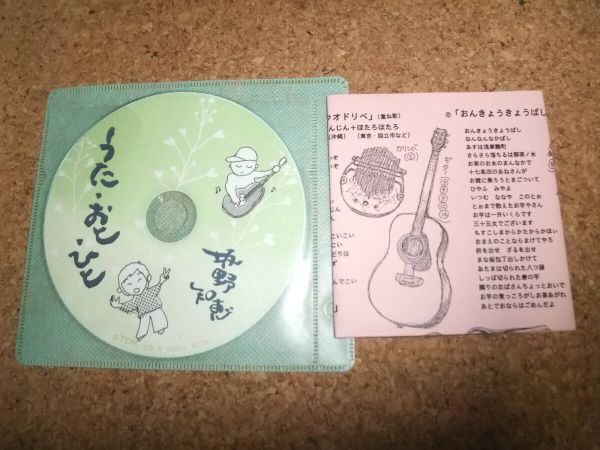 うた・おと・ひと
坂野知恵
TDK
ゥオドリベ」(重ね歌)
んじん+ほたろほたろ
(沖縄) (東京・国立市など)
カリンバ
ギター
⑧「おんきょうきょうばし
おんきょうきょうばし
なんなんなかばし
あすは浅草観町
さらさら落ちるは御茶ノ水
お茶のお水のまんなかで
十七島田のあねさんが
お籠に乗ろうとまごついて
ひやふ みやよ
いつむ ななや このとぉ
とぉまで数えたお芋やさん
お芋は一升いくらです
三十五文でございます
もすこしまからかたからかほい
おまえのことならまけてやろ
枡を出せ ざるを出せ
まな板包丁出しかけて
あたまは切られた八つ頭
しっぽ切られた唐の芋
隣りのおばさんちょっとおいで
お芋の煮っころがしお茶あがれ
あとでおならはごめんだよ
こいこい
でこい